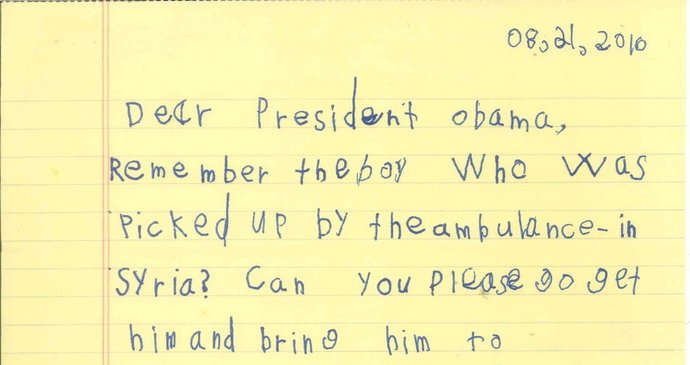 08,21,2010
Dear President obama,
Remember the boy who was
picked up by the ambulance-in
Syria? Can you please go get
him and bring him to